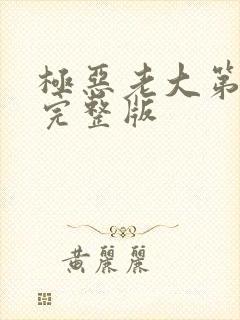 極惡老大第
完整版
黄麗麗